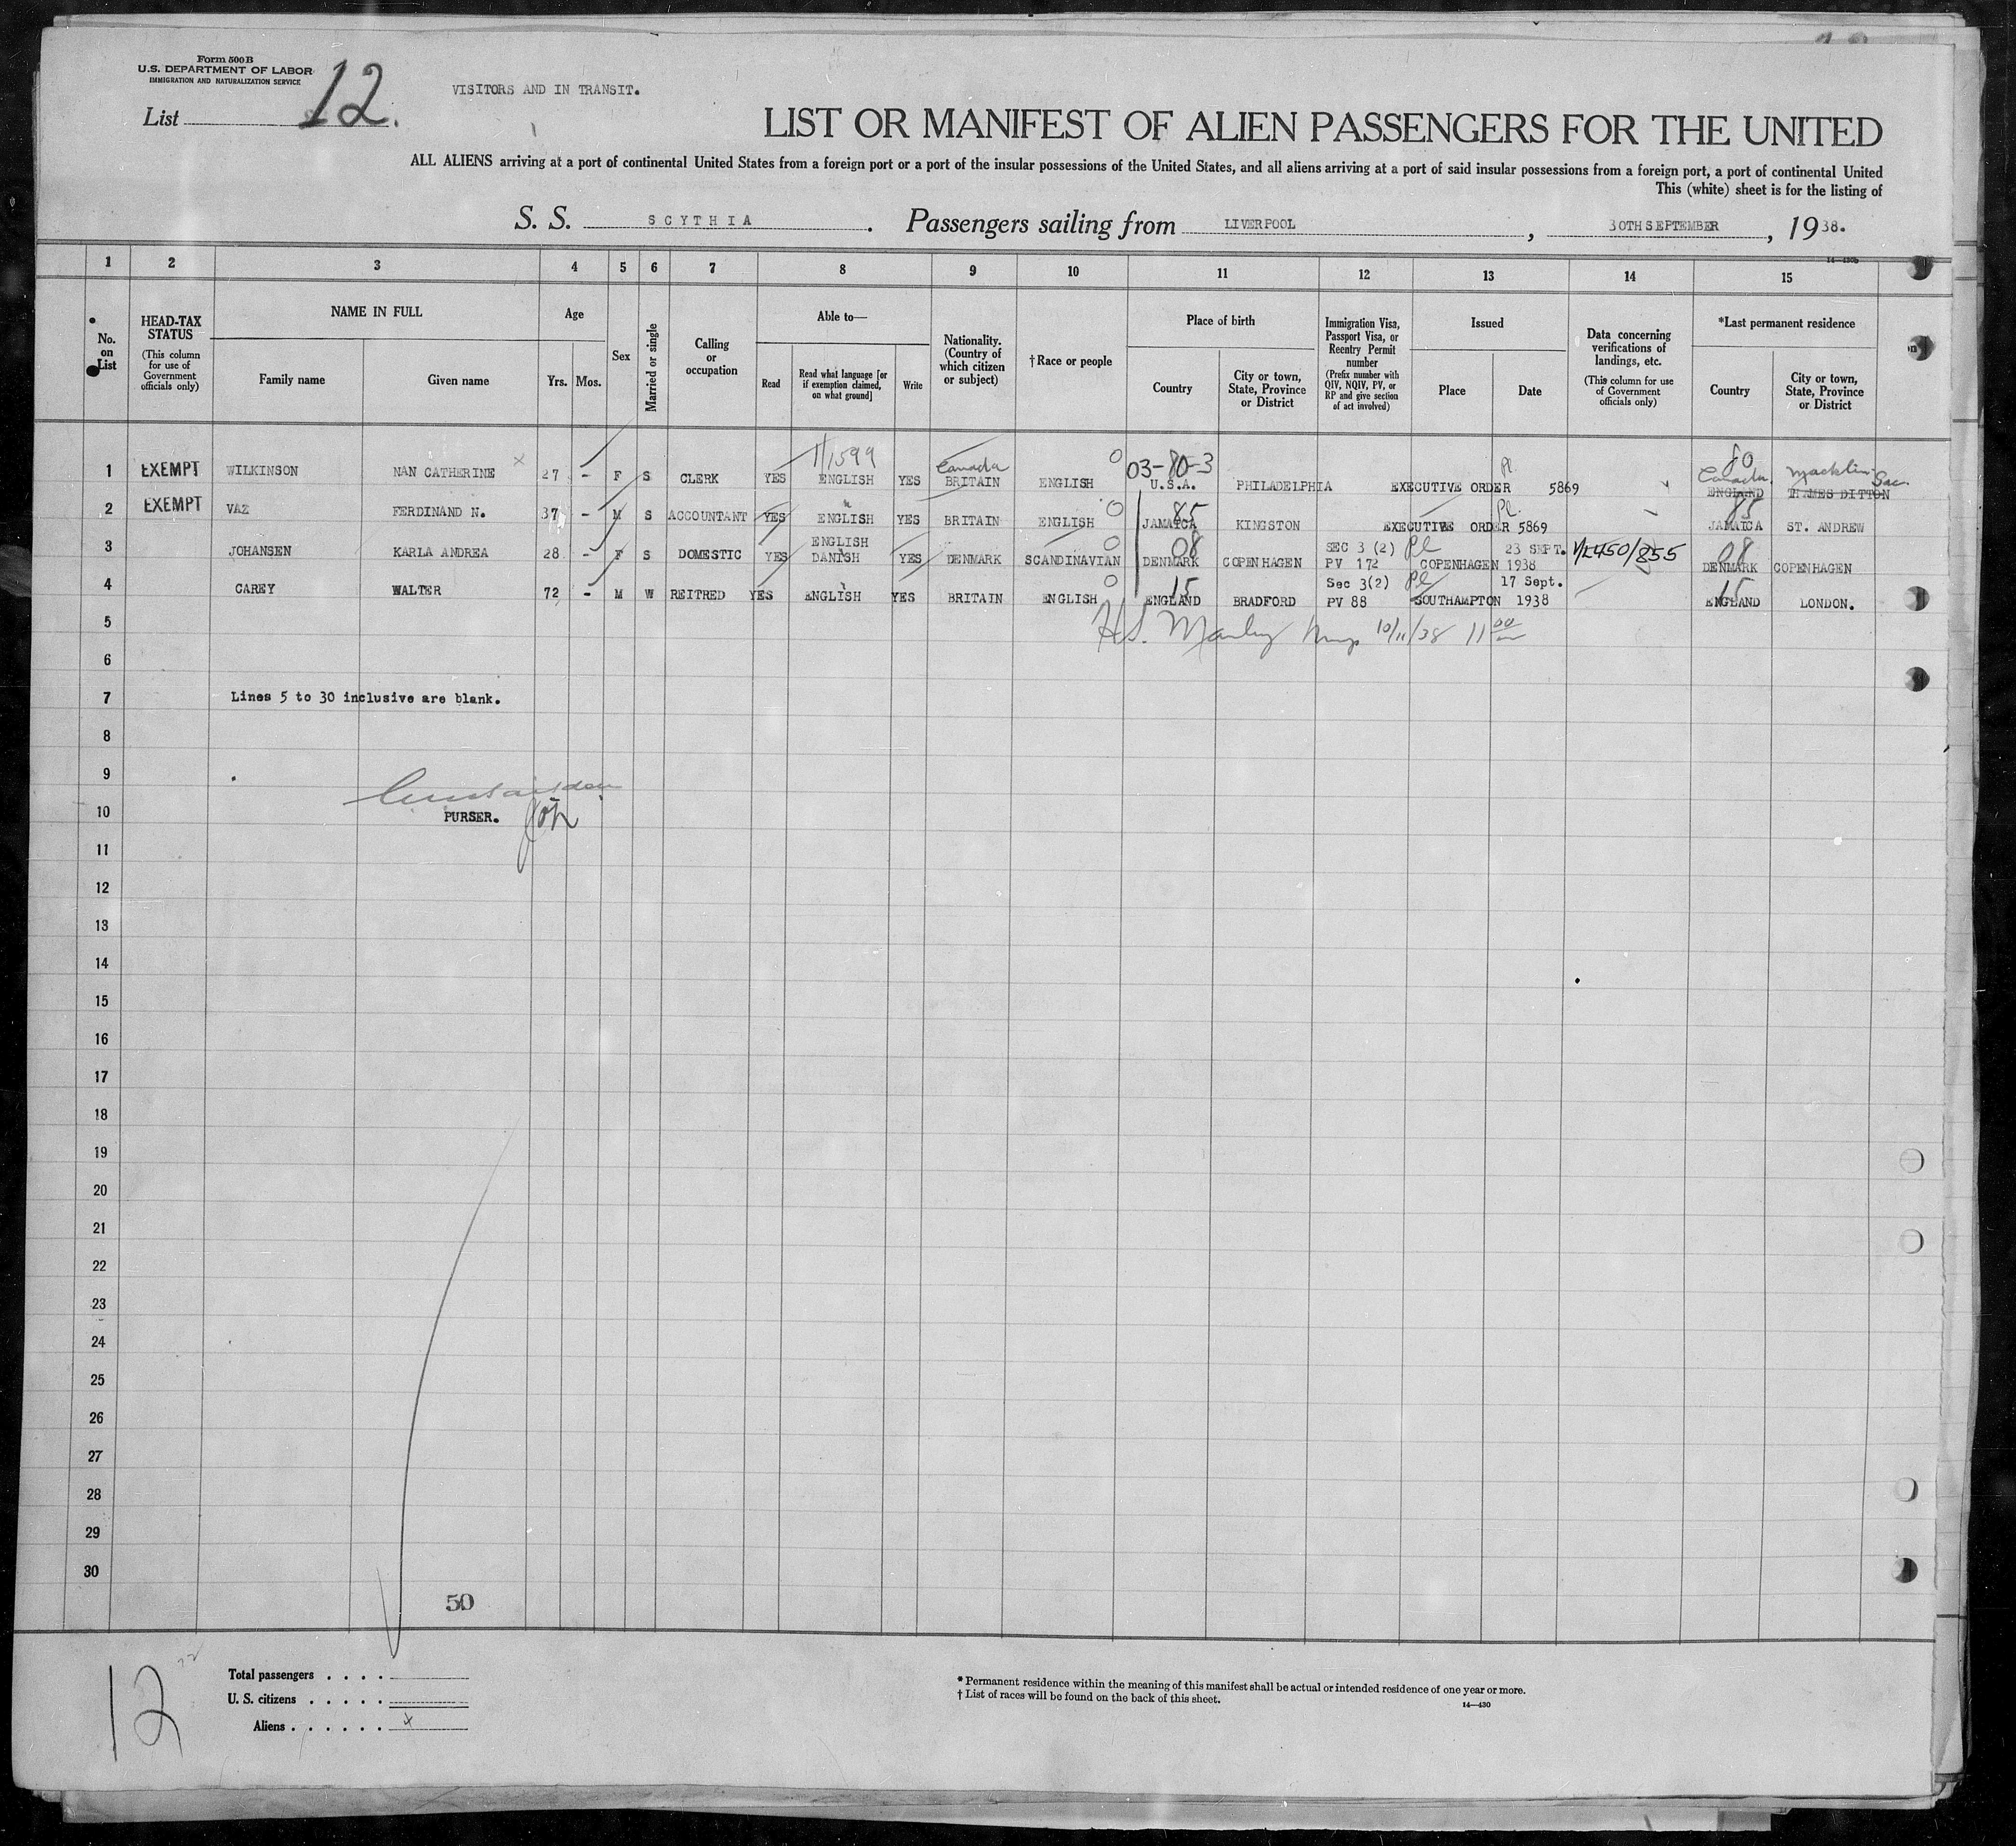 Form 500 B
U.S. DEPARTMENT OF LABOR
IMMIGRATION AND NATURALIZATION SERVICE
List 12.
VISITORS AND IN TRANSIT.
LIST OR MANIFEST OF ALIEN PASSENGERS FOR THE UNITED
ALL ALIENS arriving at a port of continental United States from a foreign port or a port of the insular possessions of the United States, and all aliens arriving at a port of said insular possessions from a foreign port, a port of continental United
This (white) sheet is for the listing of
S. S. SCYTHIA. Passengers sailing from LIVERPOOL, 30TH SEPTEMBER, 1938.
14-430b
1 2 3 4 5 6 7 8 9 10 11 12 13 14 15
No. on List
HEAD-TAX STATUS (This column for use of Government officials only)
NAME IN FULL
Family name
Given name
Age
Yrs. Mos.
Sex
Married or single
Calling or occupation
Able to—
Read
Read what language [or if exemption claimed, on what ground]
Write
Nationality. (Country of which citizen or subject)
† Race or people
Place of birth
Country
City or town, State, Province or District
Immigration Visa, Passport Visa, or Reentry Permit number (Prefix number with QIV, NQIV, PV, or RP and give section of act involved)
Issued
Place
Date
Data concerning verifications of landings, etc. (This column for use of Government officials only)
*Last permanent residence
Country
City or town, State, Province or District
1/1599 Canada 03-80-3 pl. 80 Canada Macklin Sac.
1 EXEMPT WILKINSON NAN CATHERINE x 27 - F S CLERK YES ENGLISH YES BRITAIN ENGLISH U.S.A. PHILADELPHIA EXECUTIVE ORDER 5869 ENGLAND THAMES DITTON
85 pl. 85
2 EXEMPT VAZ FERDINAND N. 37 - M S ACCOUNTANT YES ENGLISH YES BRITAIN ENGLISH JAMAICA KINGSTON EXECUTIVE ORDER 5869 JAMAICA ST. ANDREW
ENGLISH 08 SEC 3 (2) pl 23 SEPT. 08
3 JOHANSEN KARLA ANDREA 28 - F S DOMESTIC YES DANISH YES DENMARK SCANDINAVIAN DENMARK COPENHAGEN PV 172 COPENHAGEN 1938 450/855 DENMARK COPENHAGEN
15 Sec 3(2) pl 17 Sept. 15
4 CAREY WALTER 72 - M W REITRED YES ENGLISH YES BRITAIN ENGLISH ENGLAND BRADFORD PV 88 SOUTHAMPTON 1938 ENGLAND LONDON.
5 H.S. Manley 10/11/38 11 00
6
7 Lines 5 to 30 inclusive are blank.
8
9
10 PURSER.
11
12
13
14
15
16
17
18
19
20
21
22
23
24
25
26
27
28
29
30
50
12
Total passengers . . . .
U. S. citizens . . . . .
Aliens . . . . . . x
* Permanent residence within the meaning of this manifest shall be actual or intended residence of one year or more.
† List of races will be found on the back of this sheet.
14—430